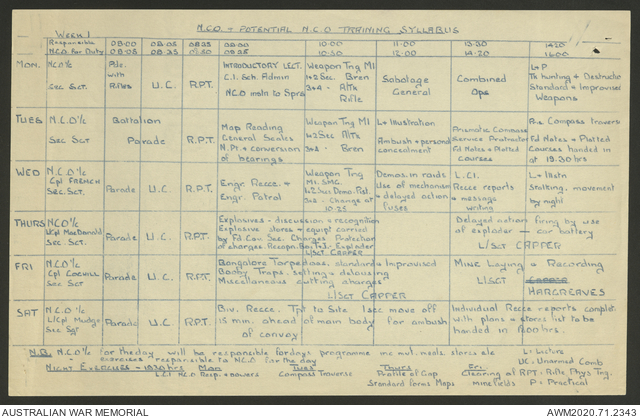 N.C.O. + POTENTIAL N.C.O TRAINING SYLLABUS
WEEK 1
Responsible N.C.O for Duty 08·00 08·05 08·05 08·35 08·35 09·35 10·00 10·50 11·00 12·00 13·30 14·20 14·20 16·00
MON. N.C.O i/c Sec Sgt. Pde. with Rifles U.C. R.P.T. INTRODUCTORY LECT. C.I. Sch. Admin N.C.O matn to Sprs Weapon Tng M1 1+2 Sec. Bren 3+4 - A/Tk Rifle Sabotage General Combined Ops L+P Tk hunting + Destructio Standard + Improvised Weapons
TUES N.C.O i/c Sec Sgt Battalion Parade R.P.T. Map Reading General Scales N.Pt. + conversion of bearings Weapon Tng M1 1+2 Sec A/Tk 3+4 - Bren L+Illustration Ambush + personal concealment Prismatic Compass Service Protractor Fd Notes + Plotted Courses Compass travers Fd Notes + Plotted Courses handed in at 18.30 hrs
WED N.C.O i/c Cpl FRENCH Sec. Sgt. Parade U.C. R.P.T. Engr. Recce. + Engr Patrol Weapon Tng M1. SMG. 1+2 Sec Demo. Pist. 3+4 - Change at 10.25 Demos. in raids Use of mechanism + delayed action fuses L.CI. Recce reports + message writing L + Illstn Stalking, movement by night
THURS NCO i/c L/Cpl MacDonald Sec. Sgt. Parade U.C. R.P.T. Explosives - discussion + recognition Explosive stores + equipt carried by Fd Coy Sec. Charges Protection of charges. Recapn. Exploder L/SGT CAPPER Delayed action firing by use of exploder - car battery L/SGT CAPPER
FRI N.C.O i/c Cpl COGHILL Sec Sgt Parade U.C. R.P.T. Bangalore Torpedoes, standard + Improvised Booby Traps. Setting + delousing Miscellaneous cutting charges L/SGT CAPPER MINE Laying + Recording L/SGT HARGREAVES
SAT N.C.O i/c L/Cpl Mudge Sec Sgt Parade U.C. R.P.T. Div. Recce. Tpt to Site 1 sec move off 15 min. ahead of main body for ambush of convoy Individual Recce reports complet. with plans + stores list to be handed in 1600 hrs.
N.B. N.C.O i/c for the day will be responsible for days programme inc aut. meds. stores etc L = Lecture
exercises responsible to N.C.O for the day UC = Unarmed Comb
NIGHT EXERCISES - 1830 hrs Mon Tues Thurs Fri RPT. = Rifle Phys Trg.
L.C.I N.C.O Resp. + powers Compass Traverse Profile of Gap Clearing of
Standard forms Maps minefields P = Practical
AUSTRALIAN WAR MEMORIAL AWM2020.71.2343